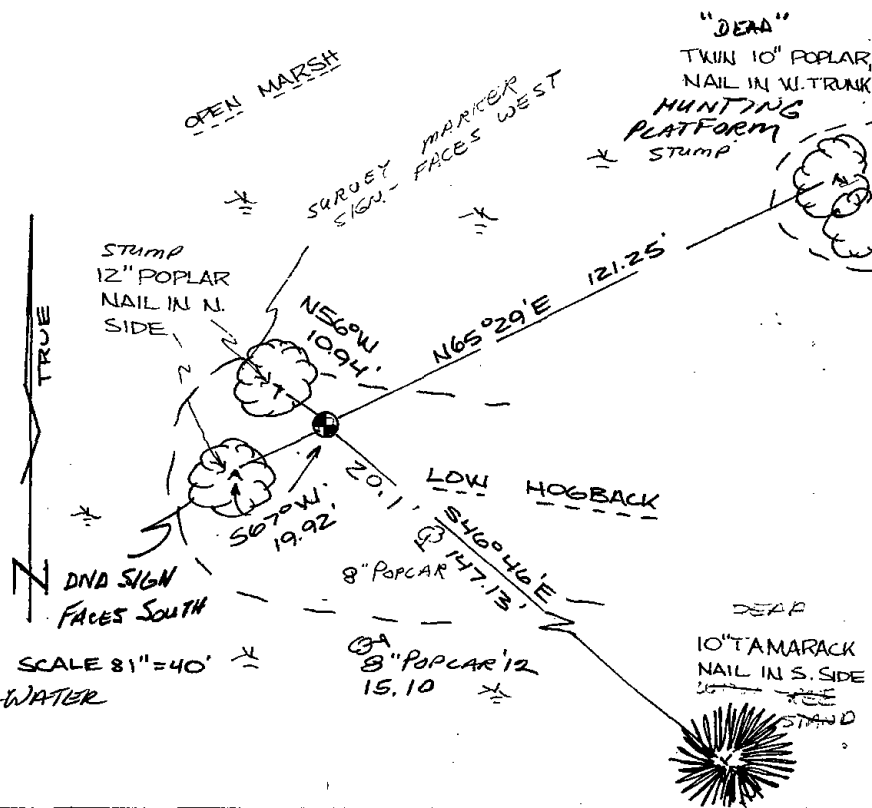 "DEAD"
TWIN 10" POPLAR,
NAIL IN W. TRUNK
HUNTING
PLATFORM
STUMP
OPEN MARSH
SURVEY MARKER
SIGN - FACES WEST
STUMP
12" POPLAR
NAIL IN N.
SIDE
TRUE
N
N56°W
10.94'
N65°29'E 121.25'
S67°W
19.92'
20.1'
LOW HOGBACK
S46°46'E
147.13'
8" POPLAR
DND SIGN
FACES SOUTH
SCALE 81"=40'
WATER
8" POPLAR '12
15.10
DEAD
10" TAMARACK
NAIL IN S. SIDE
STAND